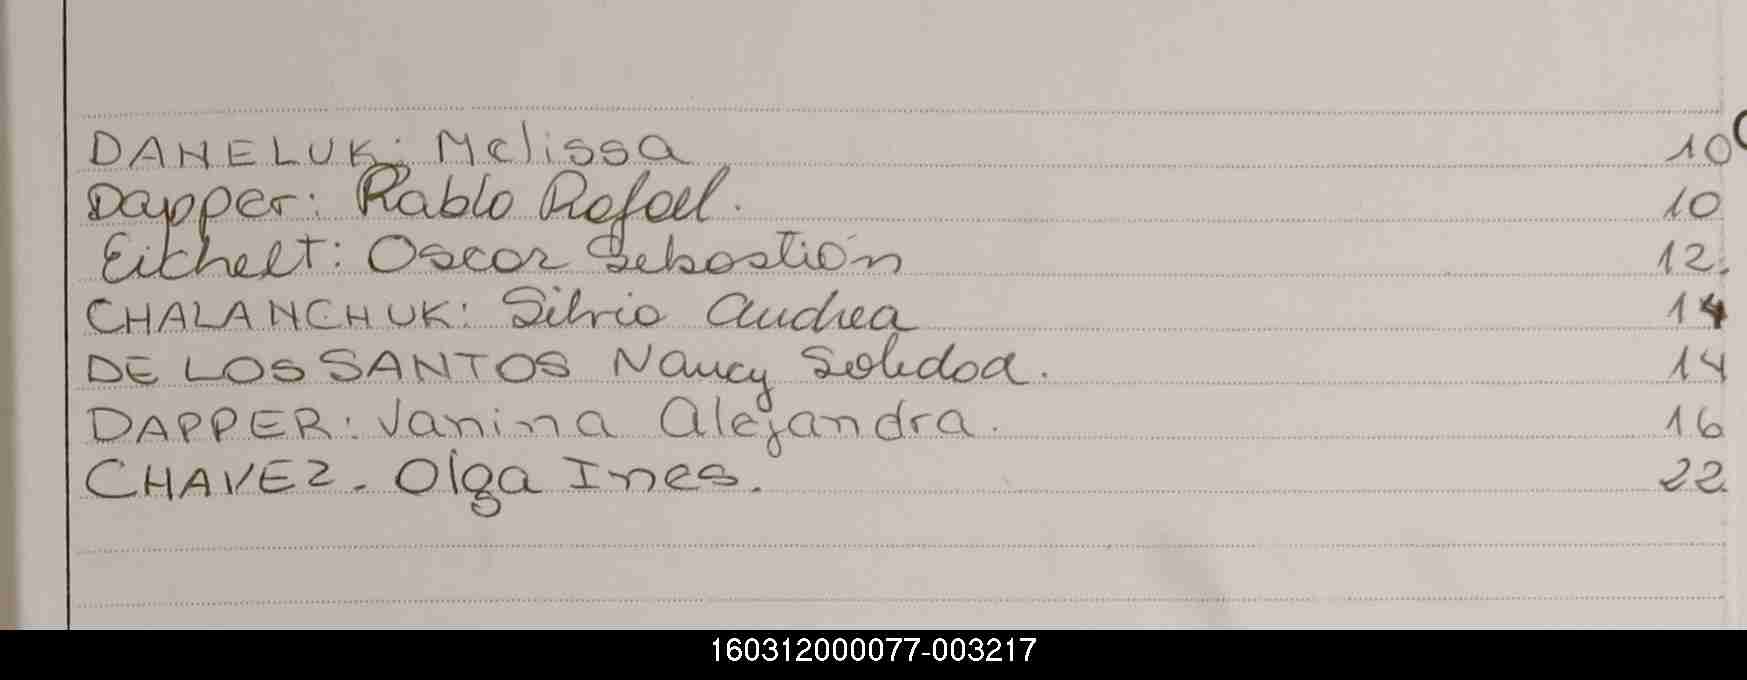 DANELUK: Melissa 10
Dapper: Pablo Rafael. 10
Eichelt: Oscar Sebastián 12.
CHALANCHUK: Silvia Andrea 14
DE LOS SANTOS Nancy Soledad. 14
DAPPER: Vanina Alejandra. 16
CHAVEZ. Olga Ines. 22
160312000077-003217